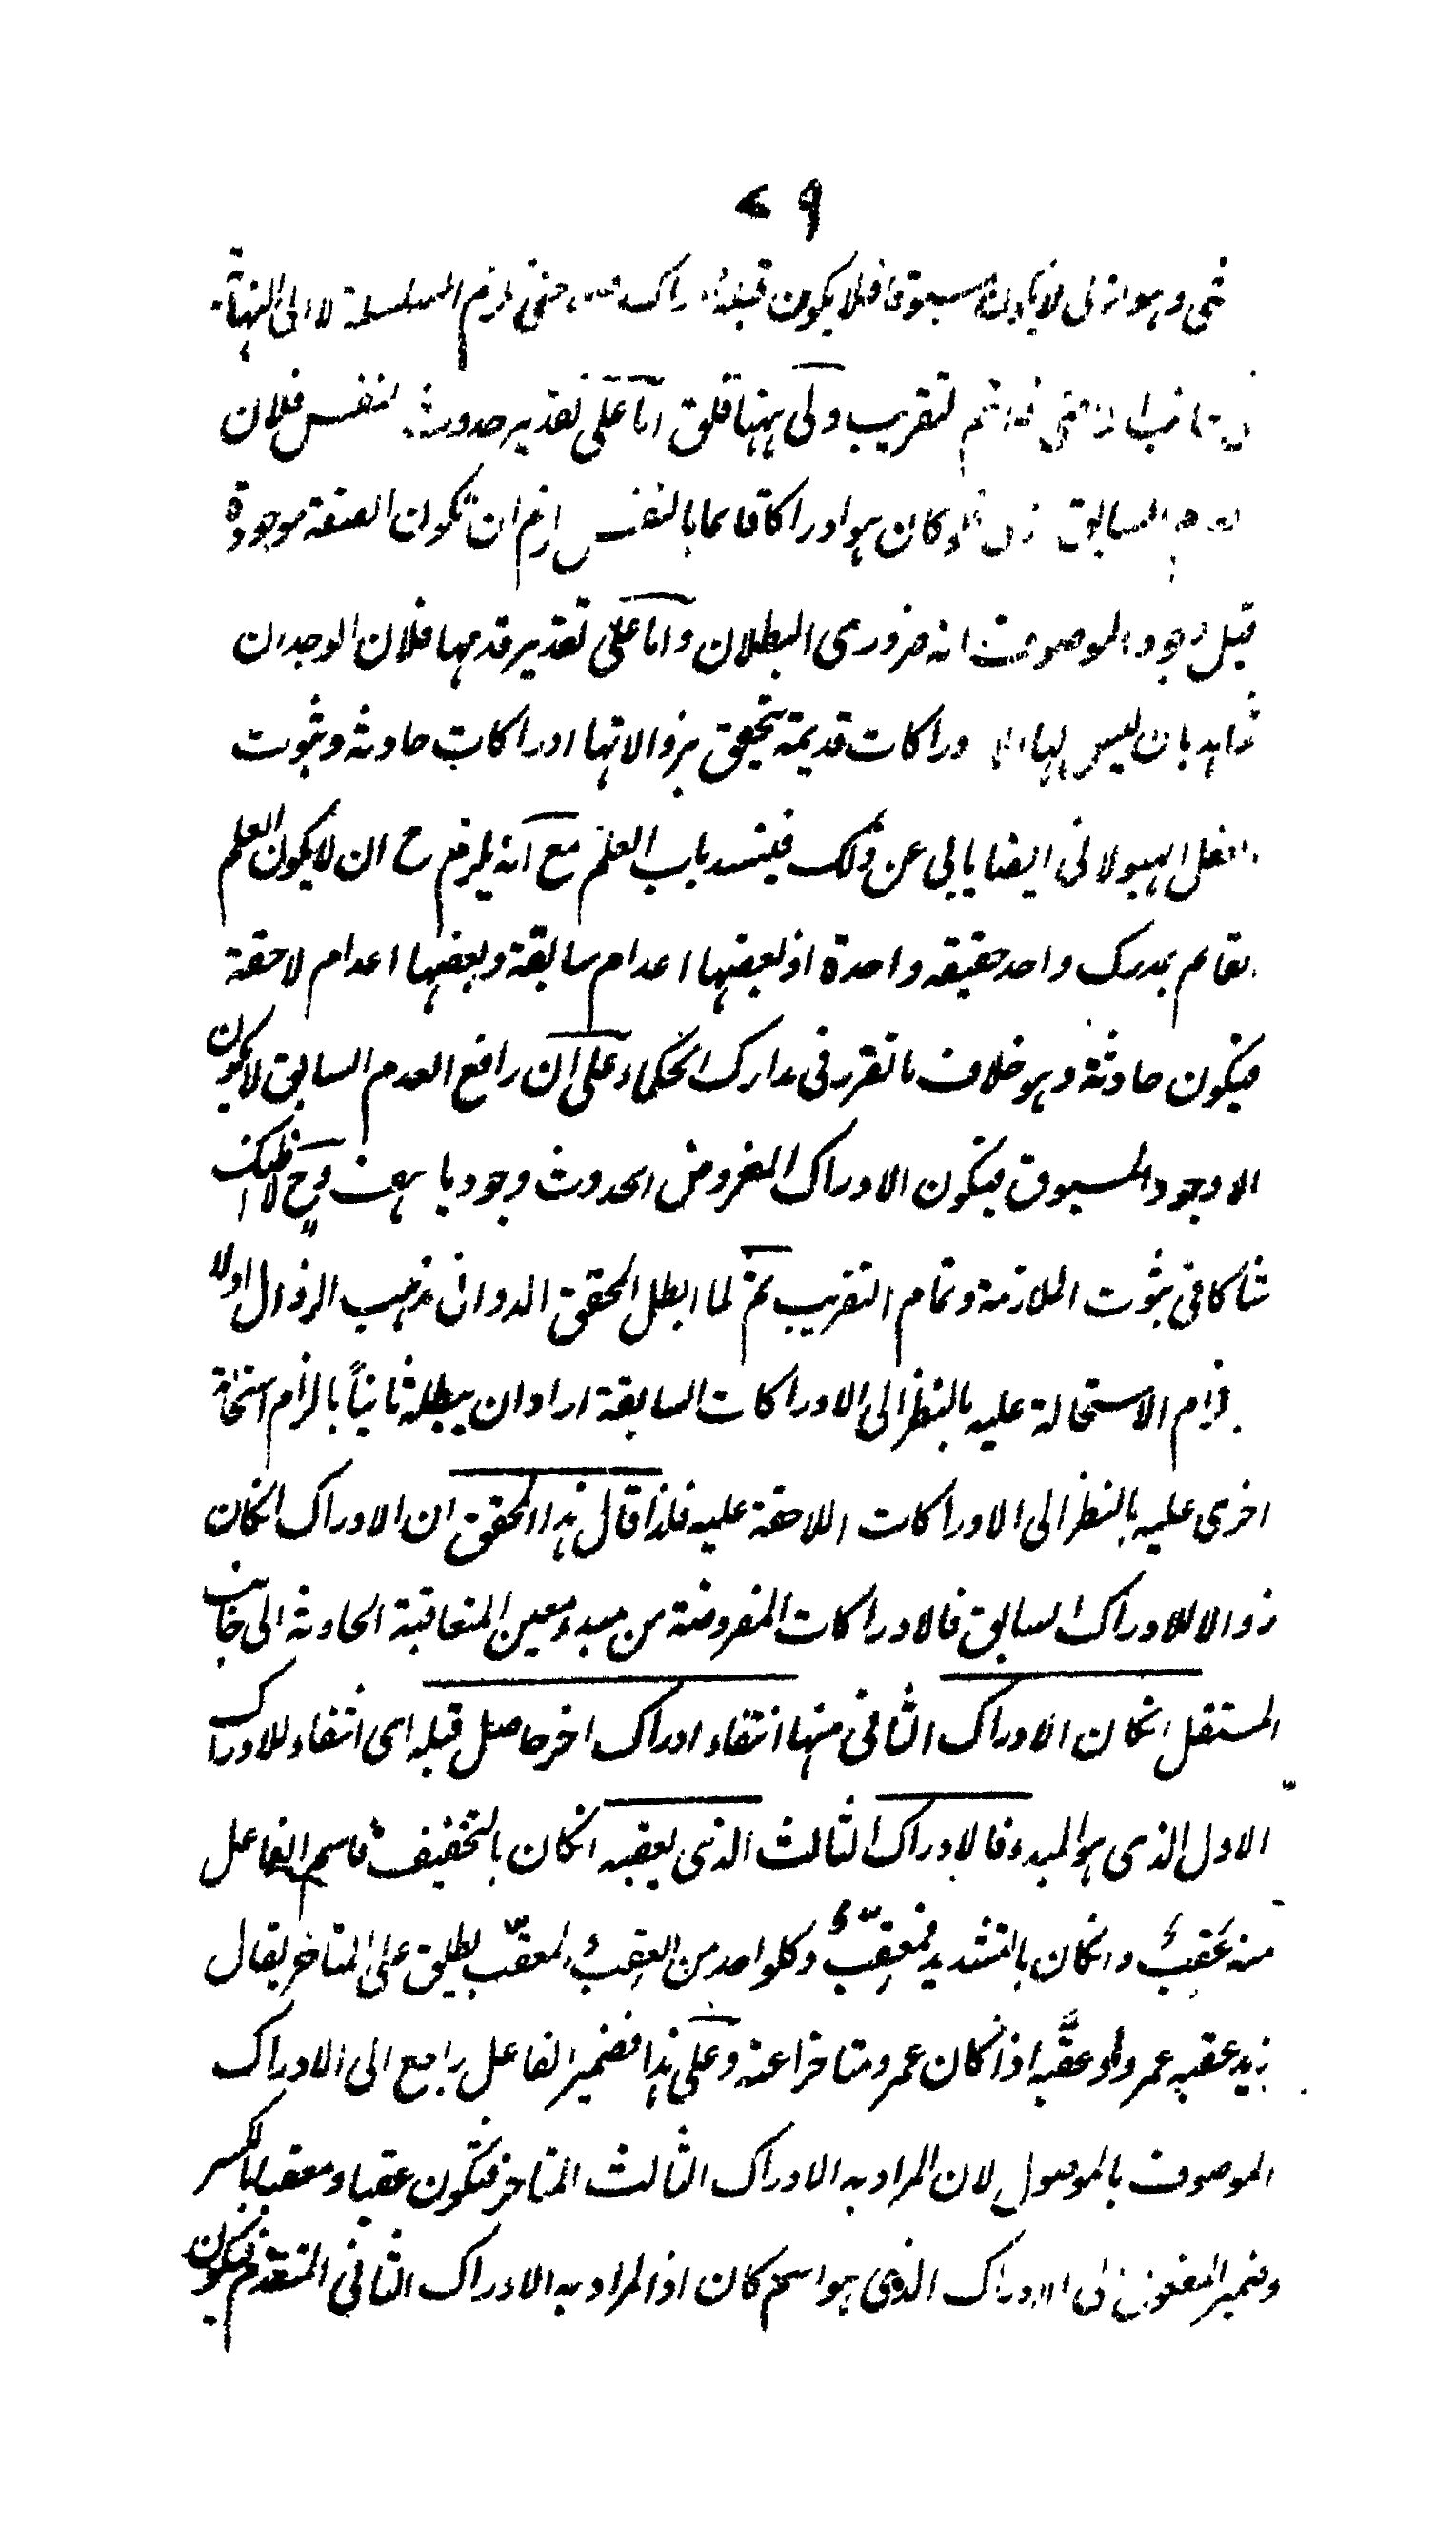 ٧٩
شي وهو ازلى لا يكون مسبوقا فلا يكون قبله حتى لزم السلسلة لا الى النهاية
لتقريب ولى ههنا قلق اما على تقدير حدوث النفس فلان
السابق لو كان هو ادراكا قائما بالنفس لزم ان تكون الصفة موجودة
قبل وجود الموصوف انه ضرورى البطلان واما على تقدير قدمها فلان الوجدان
شاهد بان ليس لها ادراكات قديمة تتحقق بزوالاتها ادراكات حادثة وثبوت
العقل الهيولانى ايضا يابى عن ذلك فينسد باب العلم مع انه يلزم ح ان لا يكون العلم
القائم بمدرك واحد حقيقة واحدة اذ بعضها اعدام سابقة وبعضها اعدام لاحقة
فيكون حادثة وهو خلاف ما تقرر فى مدارك الحكماء على ان رافع العدم السابق لا يكون
الا وجود المسبوق فيكون الادراك المفروض الحدوث وجوديا هف وح لا اظنك
شاكا فى ثبوت الملازمة وتمام التقريب ثم لما ابطل المحقق الدوانى مذهب الزوال اولا
بالزام الاستحالة عليه بالنظر الى الادراكات السابقة اراد ان يبطله ثانياً بالزام استحالة
اخرى عليه بالنظر الى الادراكات اللاحقة عليه فلذا قال هذا المحقق ان الادراك انكان
زوالا للادراك السابق فالادراكات المفروضة من مبدء معين المتعاقبة الحادثة الى جانب
المستقبل انكان الادراك الثانى منها انتفاء ادراك اخر حاصل قبله اى انتفاء للادراك
الاول الذى هو المبدء فالادراك الثالث الذى يعقبه انكان بالتخفيف فاسم الفاعل
منه عَقِبٌ وانكان بالتشديد فمعقِّبٌ وكلواحد من العقِب والمعقّب يطلق على المتاخر يقال
زيد عقبه عمرو او عقّبه اذا كان عمرو متاخرا عنه وعلى هذا فضمير الفاعل راجع الى الادراك
الموصوف بالموصول لان المراد به الادراك الثالث المتاخر فتكون عقبا ومعقبا بالكسر
وضمير المفعول الى الادراك الذى هو اسم كان اذ المراد به الادراك الثانى المتقدم فيكون